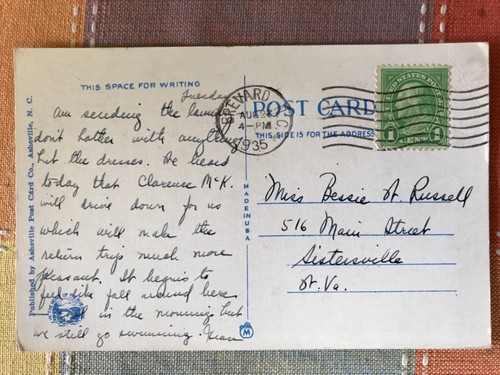 THIS SPACE FOR WRITING
Tuesday
Am sending the laundry
don't bother with anything
but the dresses. We heard
today that Clarence McK.
will drive down for us
which will make the
return trip much more
pleasant. It begins to
feel like fall around here
in the morning but
we still go swimming. Jean
Published by Asheville Post Card Co., Asheville, N. C.
MADE IN USA
M
BREVARD
AUG 2
4-PM
1935
N.C.
POST CARD
THIS SIDE IS FOR THE ADDRESS
UNITED STATES POSTAGE
1 CENT 1
Miss Bessie W. Russell
516 Main Street
Sistersville
W. Va.